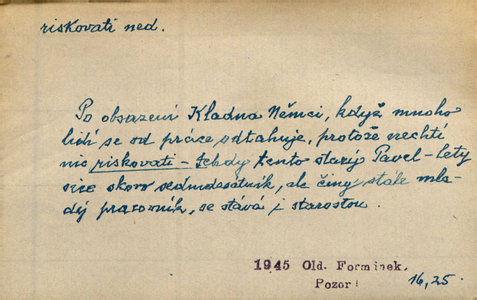 riskovati ned.
Po obsazení Kladna Němci, když mnoho
lidí se od práce odtahuje, protože nechtí
nic riskovati - tehdy tento starý Pavel - lety
sice skoro sedmdesátník, ale činy stále mla-
dý pracovník, se stává i starostou.
1945 Old. Formínek.
Pozor!
16,25.